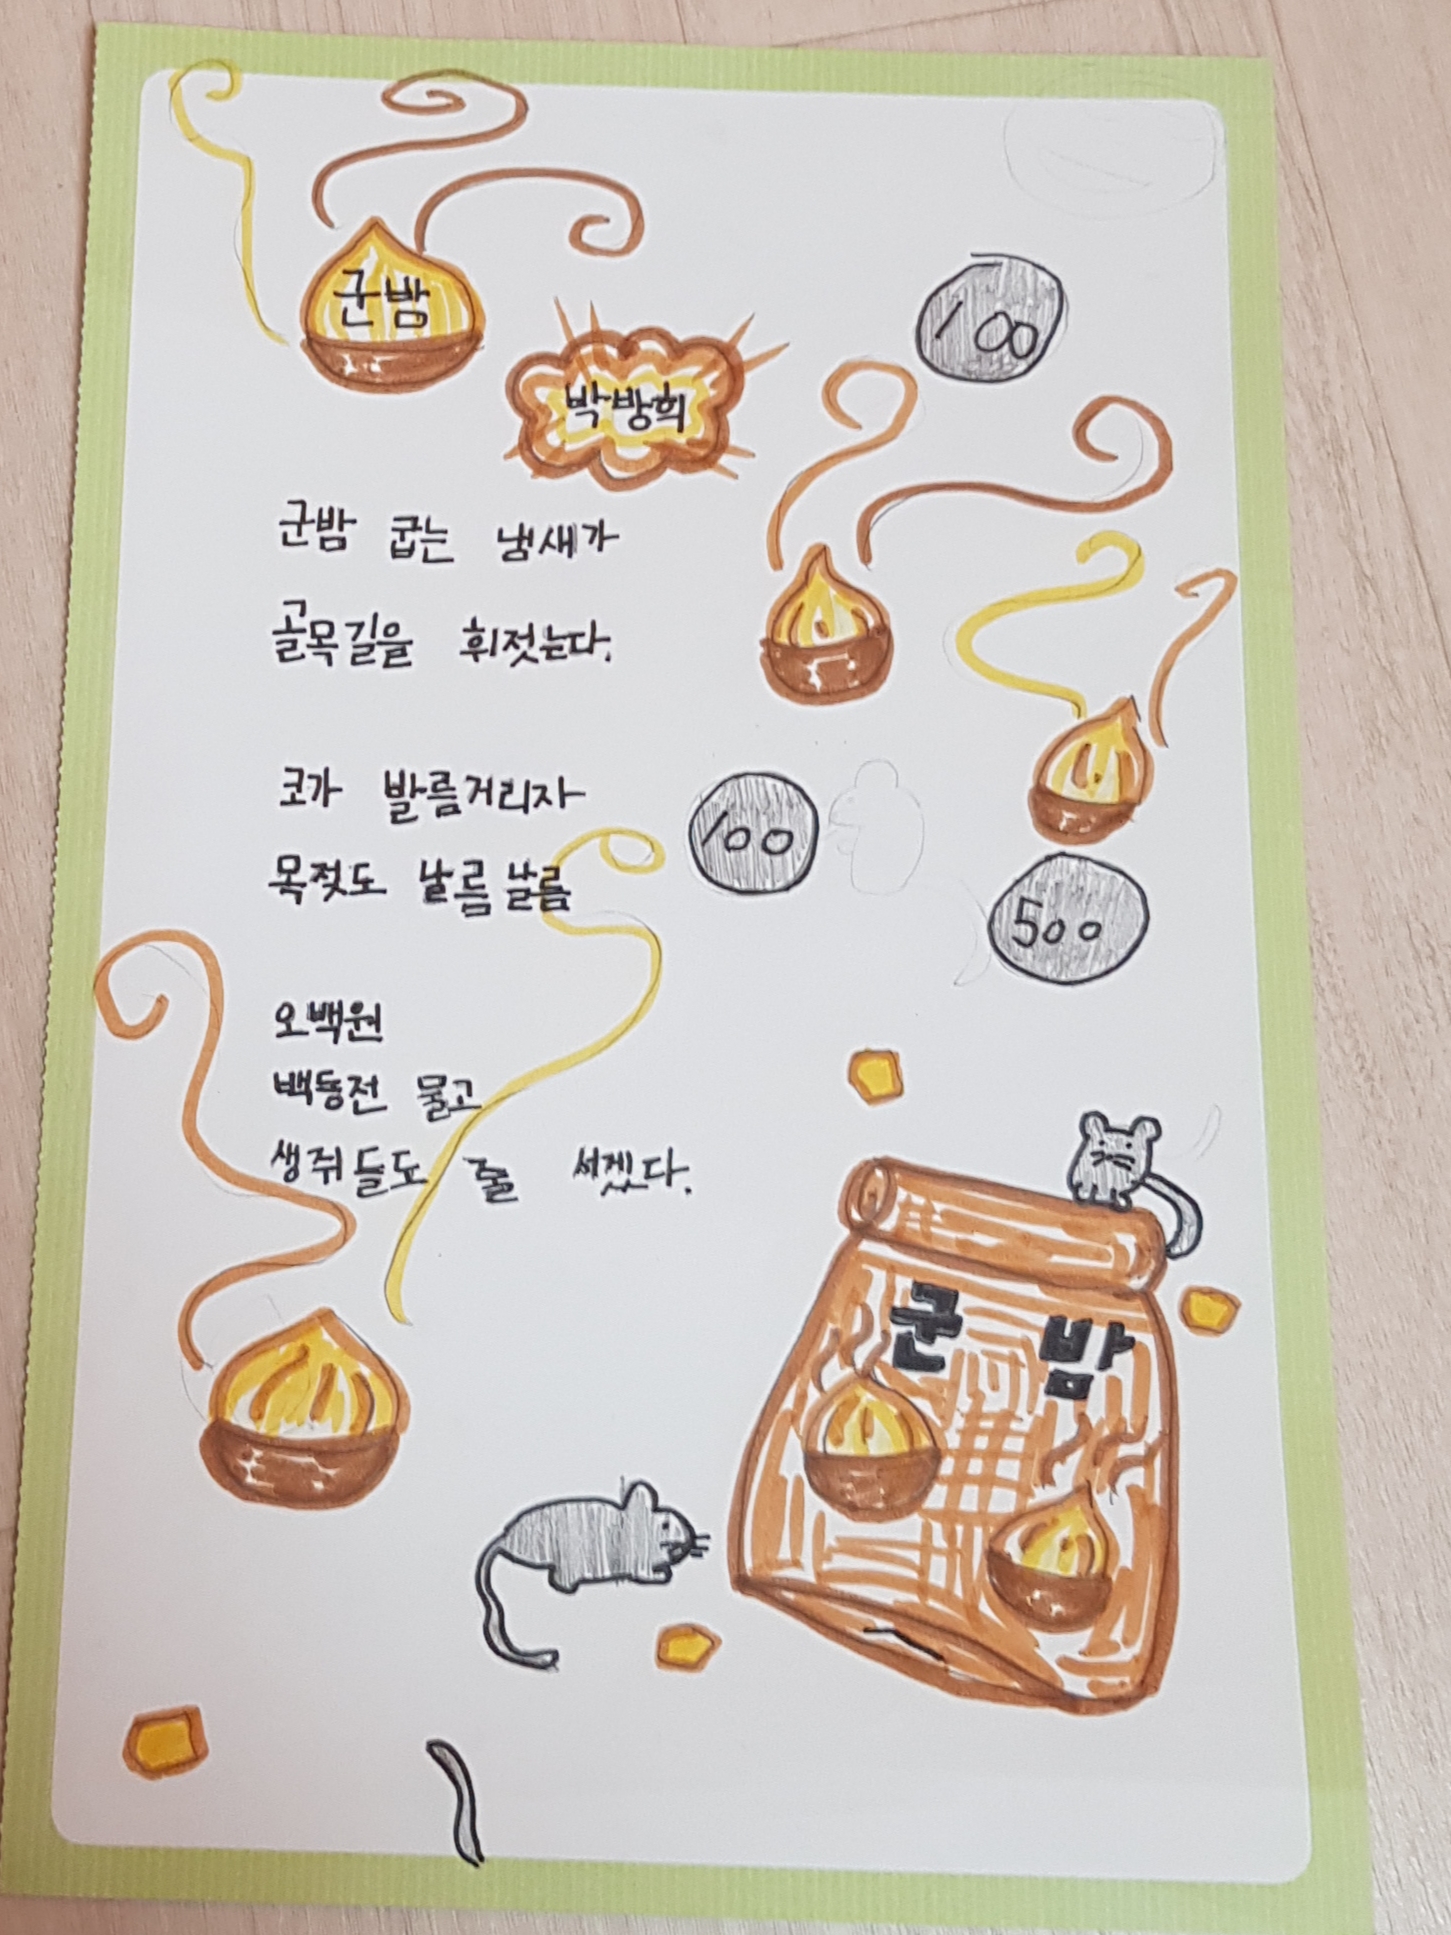 군밤
박방희
100
군밤 굽는 냄새가
골목길을 휘젓는다.
코가 발름거리자
목젖도 날름날름
100
500
오백원
백동전 물고
생쥐들도 줄 서겠다.
군밤